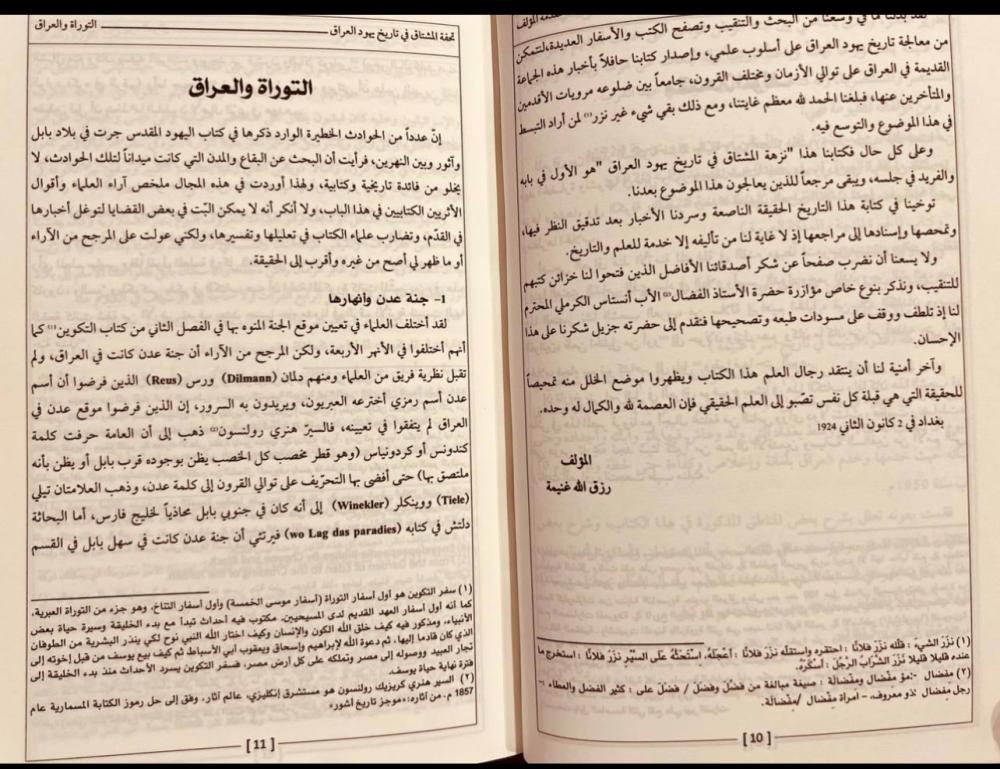 قد بذلنا ما في وسعنا من البحث والتنقيب وتصفح الكتب والأسفار العديدة، لنتمكن
من معالجة تاريخ يهود العراق على أسلوب علمي، وإصدار كتابنا حافلاً بأخبار هذه الجماعة
القديمة في العراق على توالي الأزمان ومختلف القرون، جامعاً بين ضلوعه مرويات الأقدمين
والمتأخرين عنها، فبلغنا الحمد لله معظم غايتنا، ومع ذلك بقي شيء غير نزر(١) لمن أراد التبسط
في هذا الموضوع والتوسع فيه.
وعلى كل حال فكتابنا هذا "نزهة المشتاق في تاريخ يهود العراق "هو الأول في بابه
والفريد في جلسه، ويبقى مرجعاً للذين يعالجون هذا الموضوع بعدنا.
توخينا في كتابة هذا التاريخ الحقيقة الناصعة وسردنا الأخبار بعد تدقيق النظر فيها،
وتمحصها وإسنادها إلى مراجعها إذ لا غاية لنا من تأليفه إلا خدمة للعلم والتاريخ.
ولا يسعنا أن نضرب صفحاً عن شكر أصدقائنا الأفاضل الذين فتحوا لنا خزائن كتبهم
للتنقيب، ونذكر بنوع خاص مؤازرة حضرة الأستاذ الفضال(٢) الأب أنستاس الكرملي المحترم
لنا إذ تلطف ووقف على مسودات طبعه وتصحيحها فنقدم إلى حضرته جزيل شكرنا على هذا
الإحسان.
وآخر أمنية لنا أن ينتقد رجال العلم هذا الكتاب ويظهروا موضع الخلل منه تمحيصاً
للحقيقة التي هي قبلة كل نفس تصبو إلى العلم الحقيقي فإن العصمة لله والكمال له وحده.
بغداد في 2 كانون الثاني 1924
المؤلف
رزق الله غنيمة
(١) نَزُرَ الشيءَ : قَلَّله نَزَرَ فلانًا : احتقره واستقلَّه نَزَرَ فلانًا : أعْجَلَهُ، اسْتَحَثَّهُ عَلَى السَّيْرِ نَزَرَ فلانًا : استخرج ما
عنده قليلا قليلا نَزَرَ الشَّرَابُ الرَّجُلَ : أسْكَرَهُ.
(٢) مفضال :-مؤ مفضال ومفضالة : صيغة مبالغة من فضَلَ وفضِلَ / فضَلَ على : كثير الفضل والعطاء :-
رجل مفضال :ذو معروف، - امرأة مِفْضَال /مِفْضَالَة.
[ 10 ]
تحفة المشتاق في تاريخ يهود العراق
التوراة والعراق
التوراة والعراق
إنّ عدداً من الحوادث الخطيرة الوارد ذكرها في كتاب اليهود المقدس جرت في بلاد بابل
وآثور وبين النهرين، فرأيت أن البحث عن البقاع والمدن التي كانت ميداناً لتلك الحوادث، لا
يخلو من فائدة تاريخية وكتابية، ولهذا أوردت في هذه المجال ملخص آراء العلماء وأقوال
الأثريين الكتابيين في هذا الباب، ولا أنكر أنه لا يمكن البّت في بعض القضايا لتوغل أخبارها
في القدّم، وتضارب علماء الكتاب في تعليلها وتفسيرها، ولكني عولت على المرجح من الآراء
أو ما ظهر لي أصح من غيره وأقرب إلى الحقيقة.
1- جنة عدن وأنهارها
لقد أختلف العلماء في تعيين موقع الجنة المنوه بها في الفصل الثاني من كتاب التكوين(١) كما
أنهم أختلفوا في الأنهر الأربعة، ولكن المرجح من الآراء أن جنة عدن كانت في العراق، ولم
تقبل نظرية فريق من العلماء ومنهم دلمان (Dilmann) ورس (Reus) الذين فرضوا أن أسم
عدن أسم رمزي أخترعه العبريون، ويريدون به السرور، إن الذين فرضوا موقع عدن في
العراق لم يتفقوا في تعيينه، فالسيرّ هنري رولنسون(٢) ذهب إلى أن العامة حرفت كلمة
كندونس أو كردونياس (وهو قطر مخصب كل الخصب يظن بوجوده قرب بابل أو يظن بأنه
ملتصق بها) حتى أفضى بها التحرّيف على توالي القرون إلى كلمة عدن، وذهب العلامتان تيلي
(Tiele) ووينكلر (Winekler) إلى أنه كان في جنوبي بابل محاذياً لخليج فارس، أما البحاثة
دلتش في كتابه (wo Lag das paradies) فيرتئي أن جنة عدن كانت في سهل بابل في القسم
(١) سفر التكوين هو أول أسفار التوراة (أسفار موسى الخمسة) وأول أسفار التناخ، وهو جزء من التوراة العبرية،
كما أنه أول أسفار العهد القديم لدى المسيحيين. مكتوب فيه أحداث تبدأ مع بدء الخليقة وسيرة حياة بعض
الأنبياء، ومذكور فيه كيف خلق الله الكون والإنسان وكيف اختار الله النبي نوح لكي ينذر البشرية من الطوفان
الذي كان قادما إليها، ثم دعوة الله لإبراهيم وإسحاق ويعقوب أبي الأسباط ثم كيف بيع يوسف من قبل إخوته إلى
تجار العبيد ووصوله إلى مصر وتملكه على كل أرض مصر. فسفر التكوين يسرد الأحداث منذ بدء الخليقة إلى
فترة نهاية حياة يوسف.
(٢) السير هنري كريزيك رولنسون هو مستشرق إنكليزي، عالم آثار. وفق إلى حل رموز الكتابة المسمارية عام
1857 م. من آثاره: «موجز تاريخ آشور»
[ 11 ]